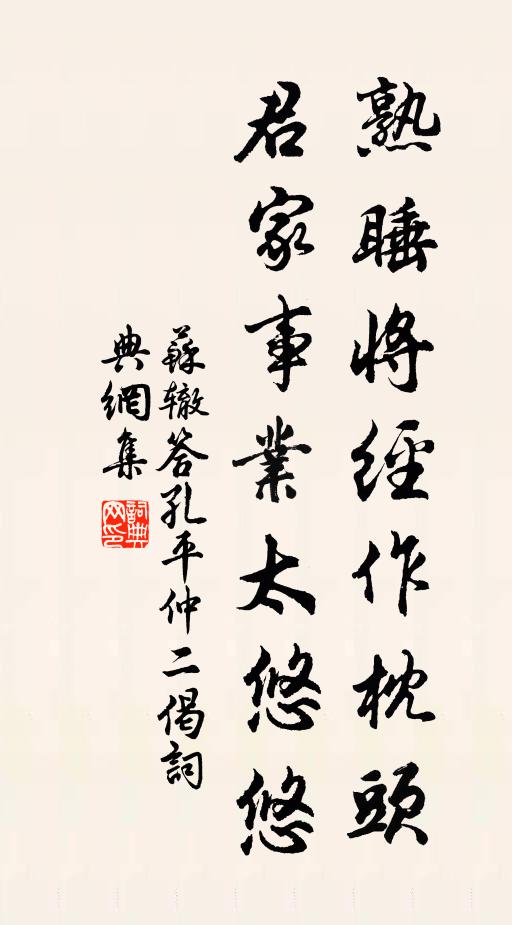 熟睡將經作枕頭
君家事業太悠悠
蘇轍答孔平仲二偈詞
典網集
詞典
网印